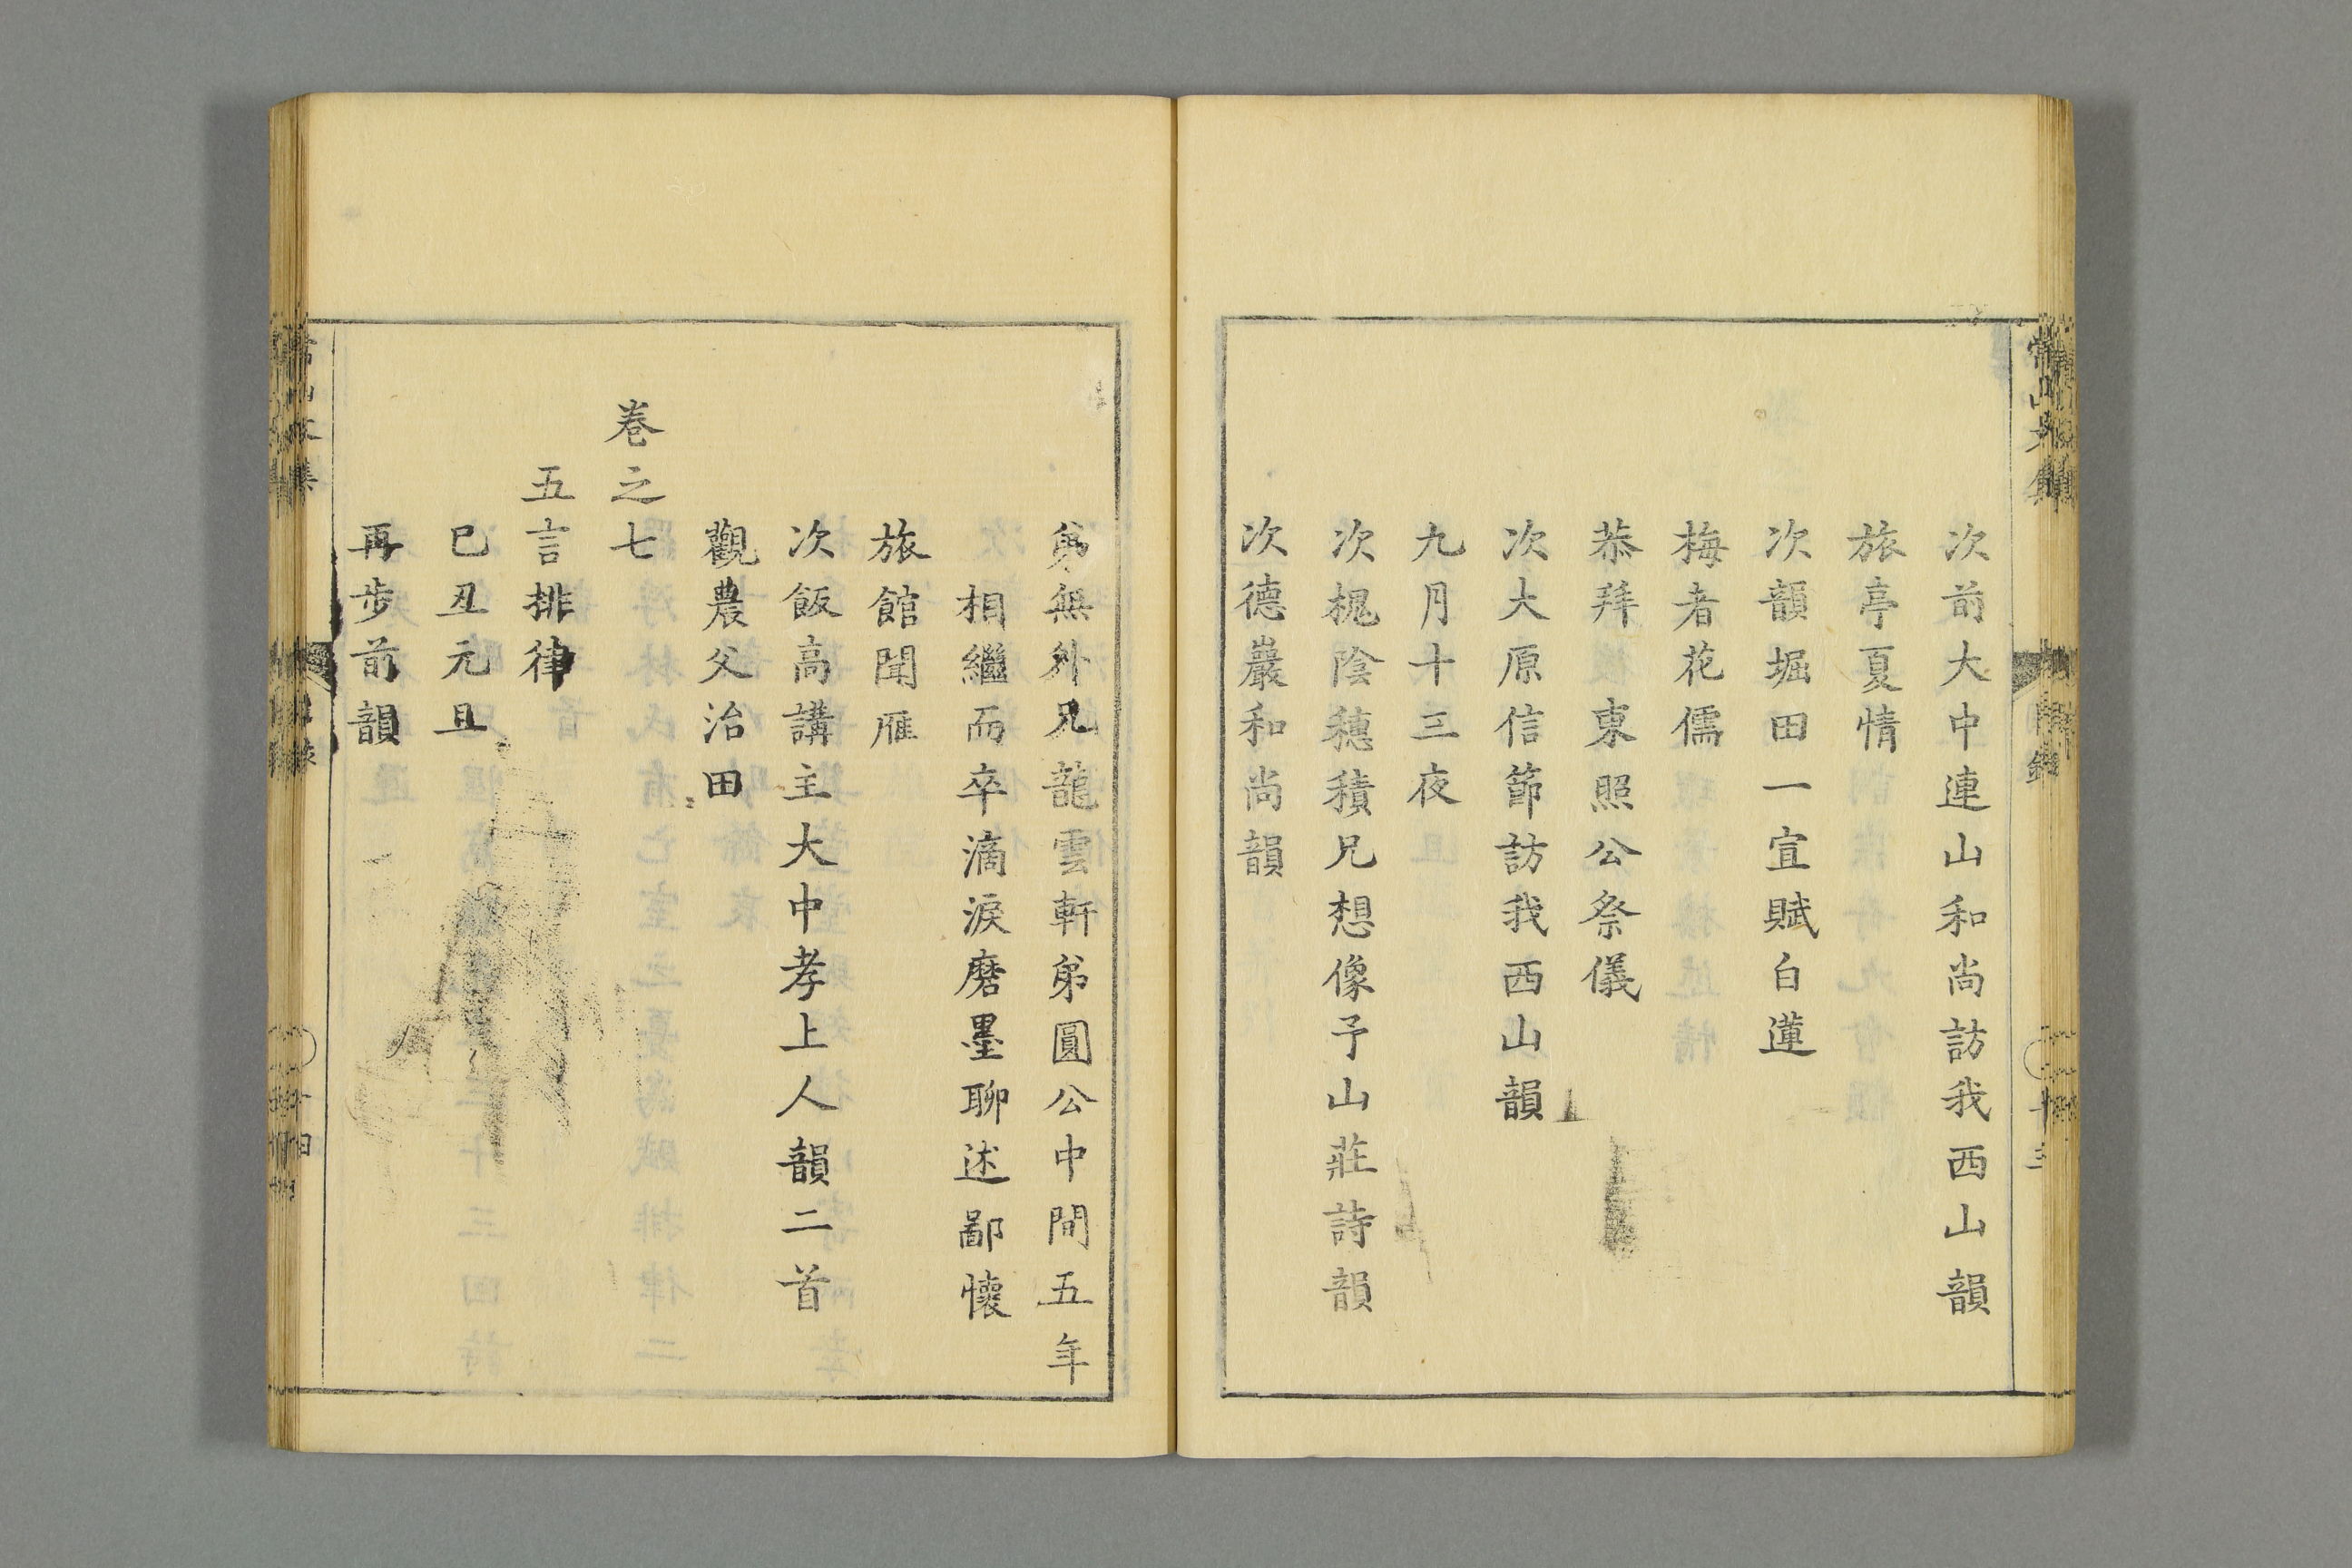 次前大中連山和尚訪我西山韻
旅亭夏情
次韻堀田一宣賦白蓮
梅者花儒
恭拜　東照公祭儀
次大原信節訪我西山韻
九月十三夜
次槐陰穗積兄想像予山莊詩韻
次德巖和尚韻
弟無外兄龍雲軒弟圓公中間五年
相繼而卒滴淚磨墨聊述鄙懷
旅館聞雁
次飯高講主大中孝上人韻二首
觀農父治田
卷之七
五言排律
己丑元旦
再步前韻